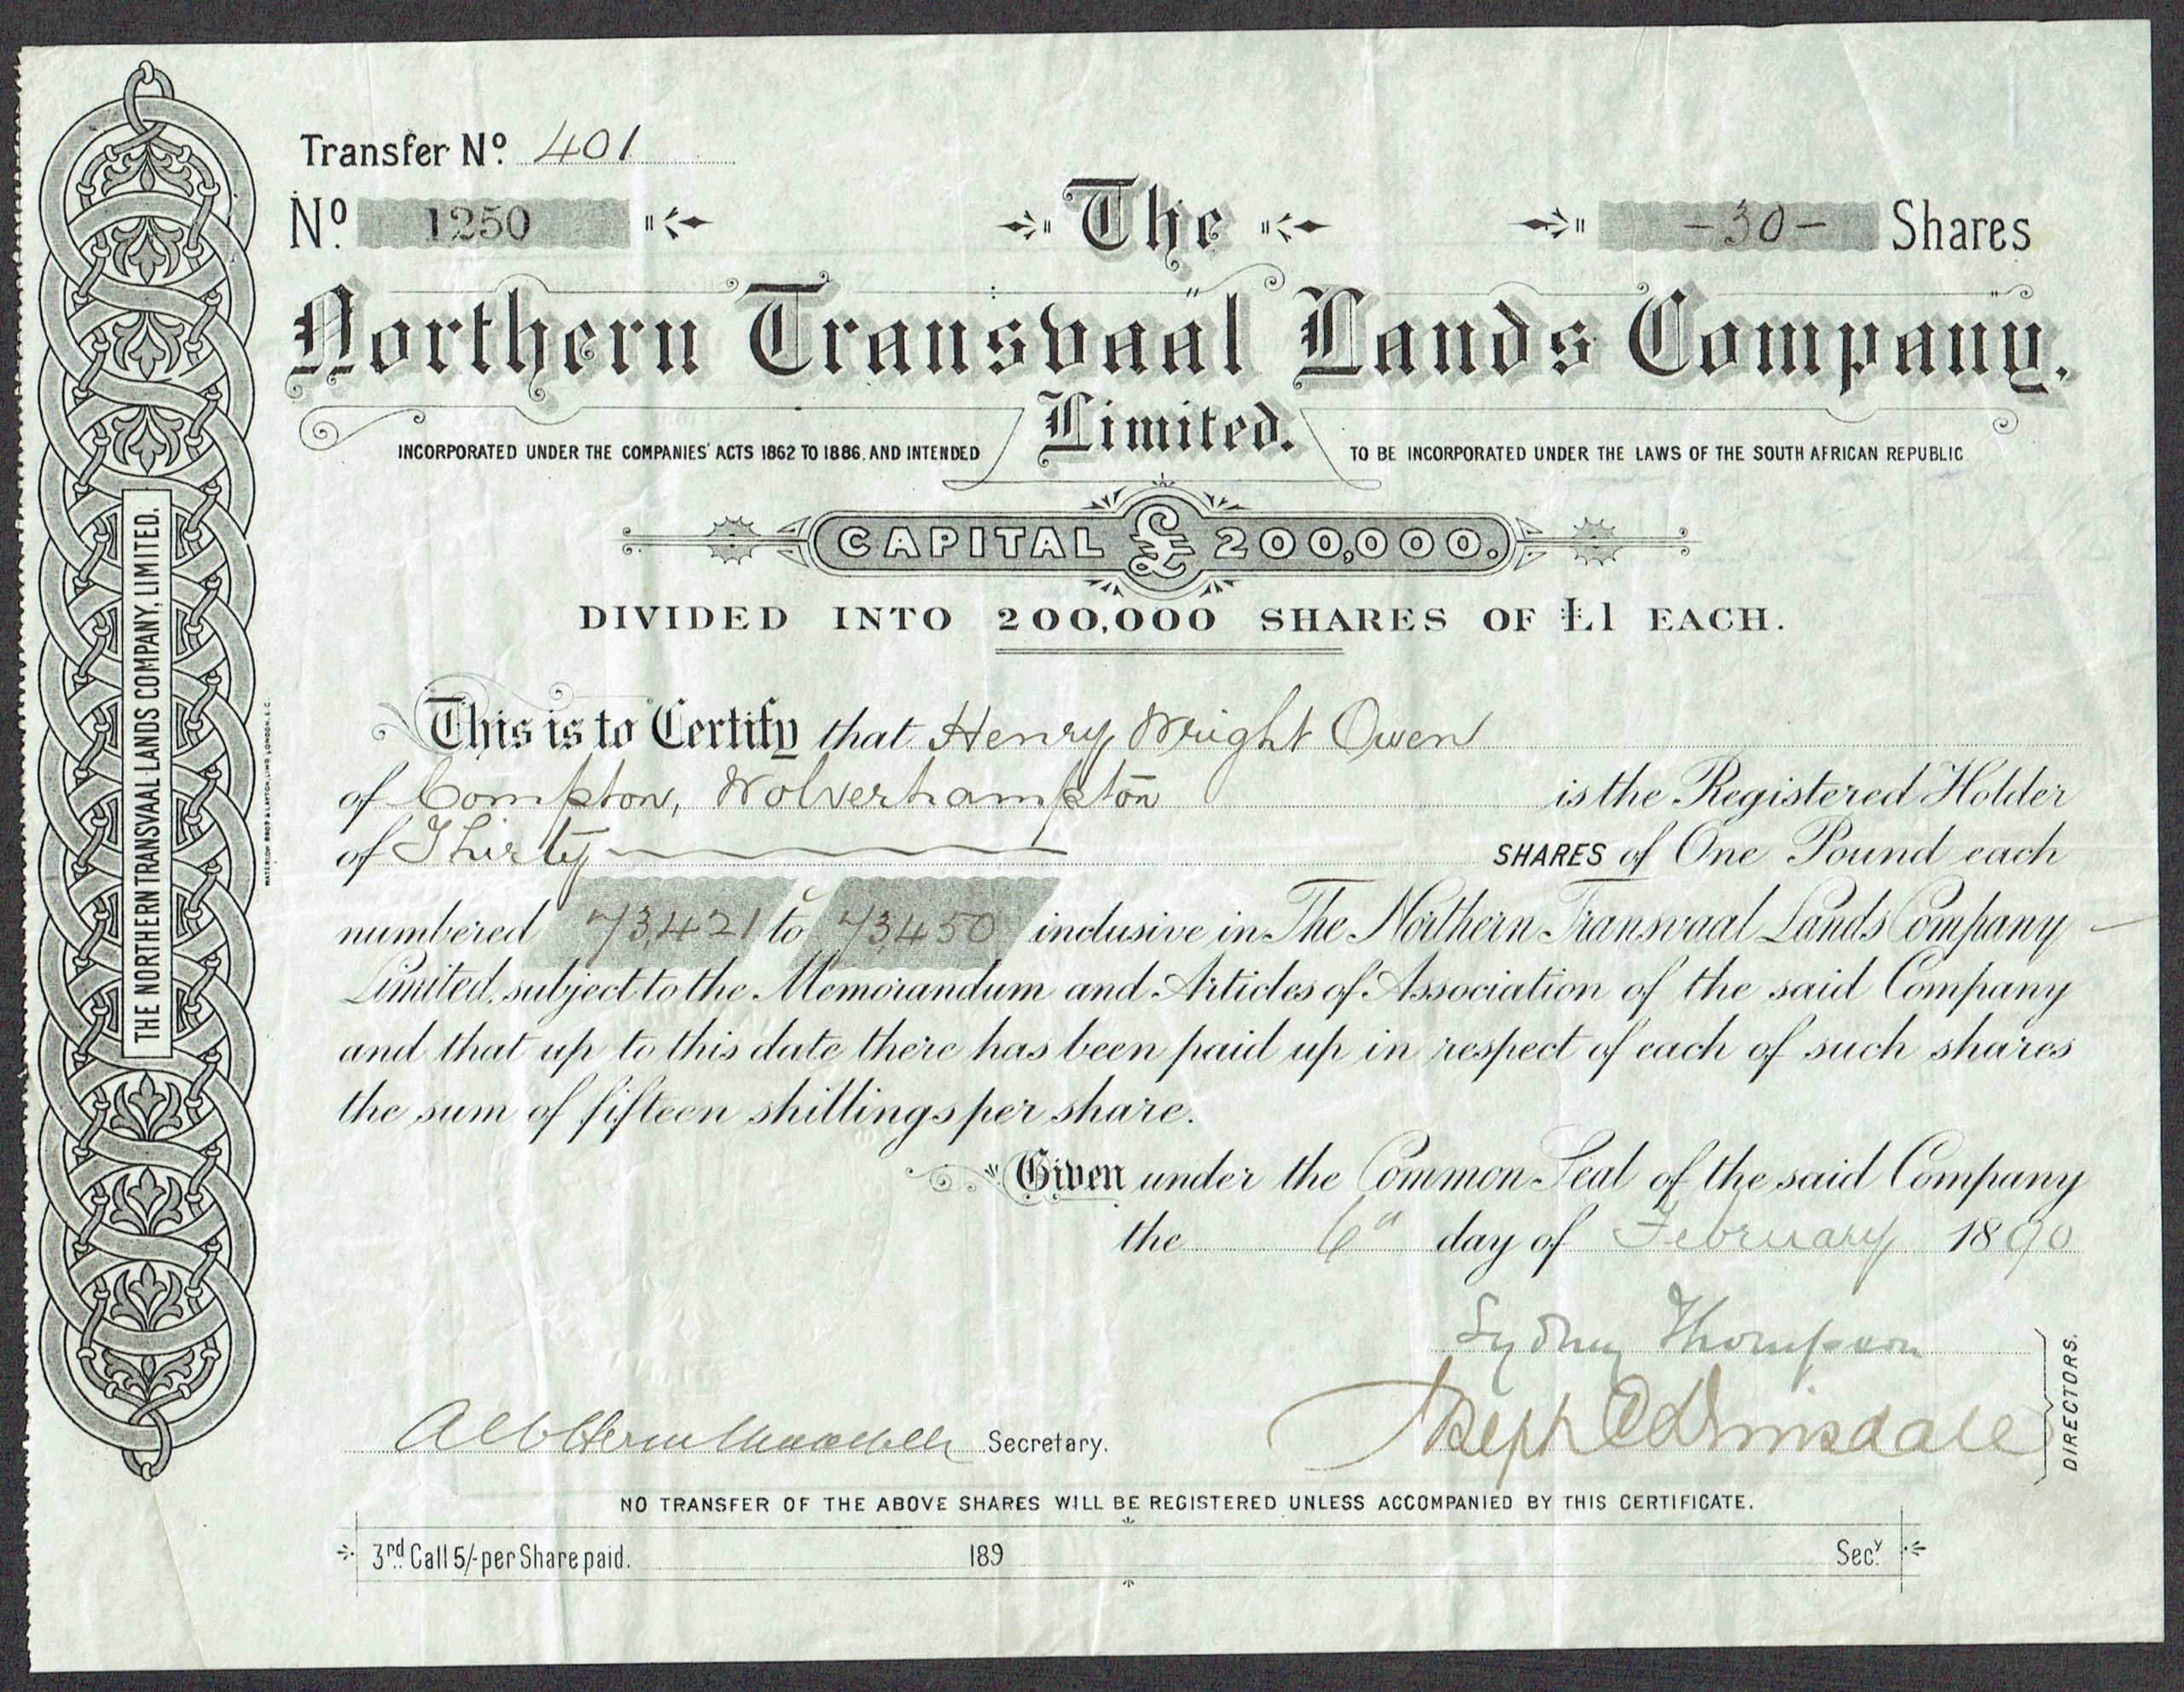 Transfer Nº 401
Nº 1250
The
-30- Shares
Northern Transvaal Lands Company,
Limited.
INCORPORATED UNDER THE COMPANIES' ACTS 1862 TO 1886, AND INTENDED TO BE INCORPORATED UNDER THE LAWS OF THE SOUTH AFRICAN REPUBLIC
CAPITAL £200,000.
DIVIDED INTO 200,000 SHARES OF £1 EACH.
This is to Certify that Henry Wright Owen
of Compton, Wolverhampton is the Registered Holder
of Thirty SHARES of One Pound each
numbered 73,421 to 73,450 inclusive in The Northern Transvaal Lands Company
Limited, subject to the Memorandum and Articles of Association of the said Company
and that up to this date there has been paid up in respect of each of such shares
the sum of fifteen shillings per share.
Given under the Common Seal of the said Company
the 6th day of February 1890
Sydney Thompson
Joseph C Dimsdale
DIRECTORS.
Secretary.
NO TRANSFER OF THE ABOVE SHARES WILL BE REGISTERED UNLESS ACCOMPANIED BY THIS CERTIFICATE.
3rd Call 5/- per Share paid. 189 Secy.
THE NORTHERN TRANSVAAL LANDS COMPANY, LIMITED.
WATERLOW BROS & LAYTON, LIMD LONDON, E.C.